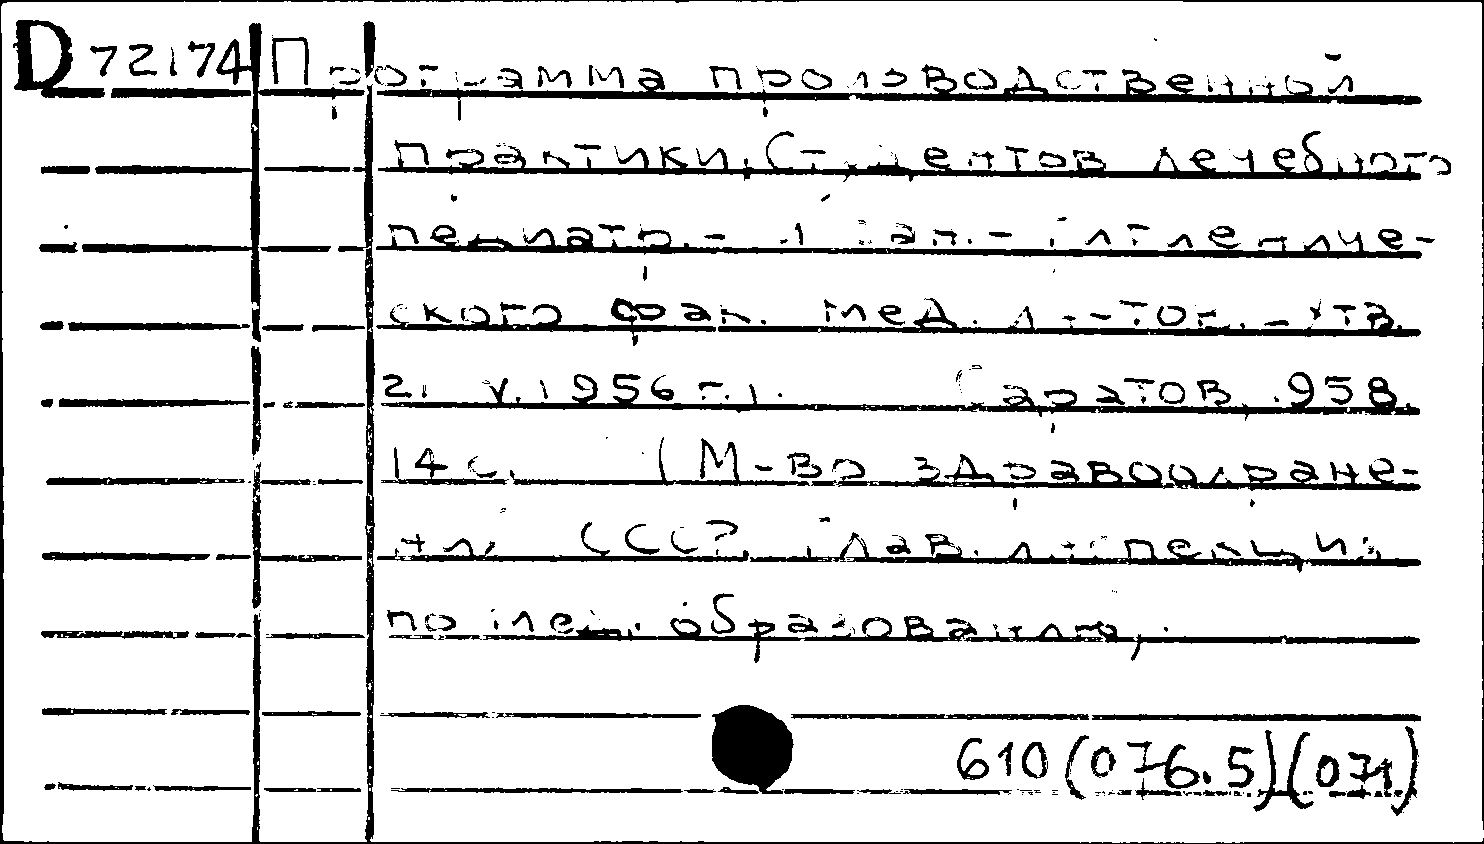 D 72174 Программа производственной
практики, Студентов лечебного
педиатр. - и сан. - гигиениче-
ского фак. мед. ин-тов. - Утв.
21. V. 1956 г. 1. Саратов, 958.
14 с. (М-во здравоохране-
ния СССР. Глав. инспекция
по мед. образованию).
610 (076.5) (071)